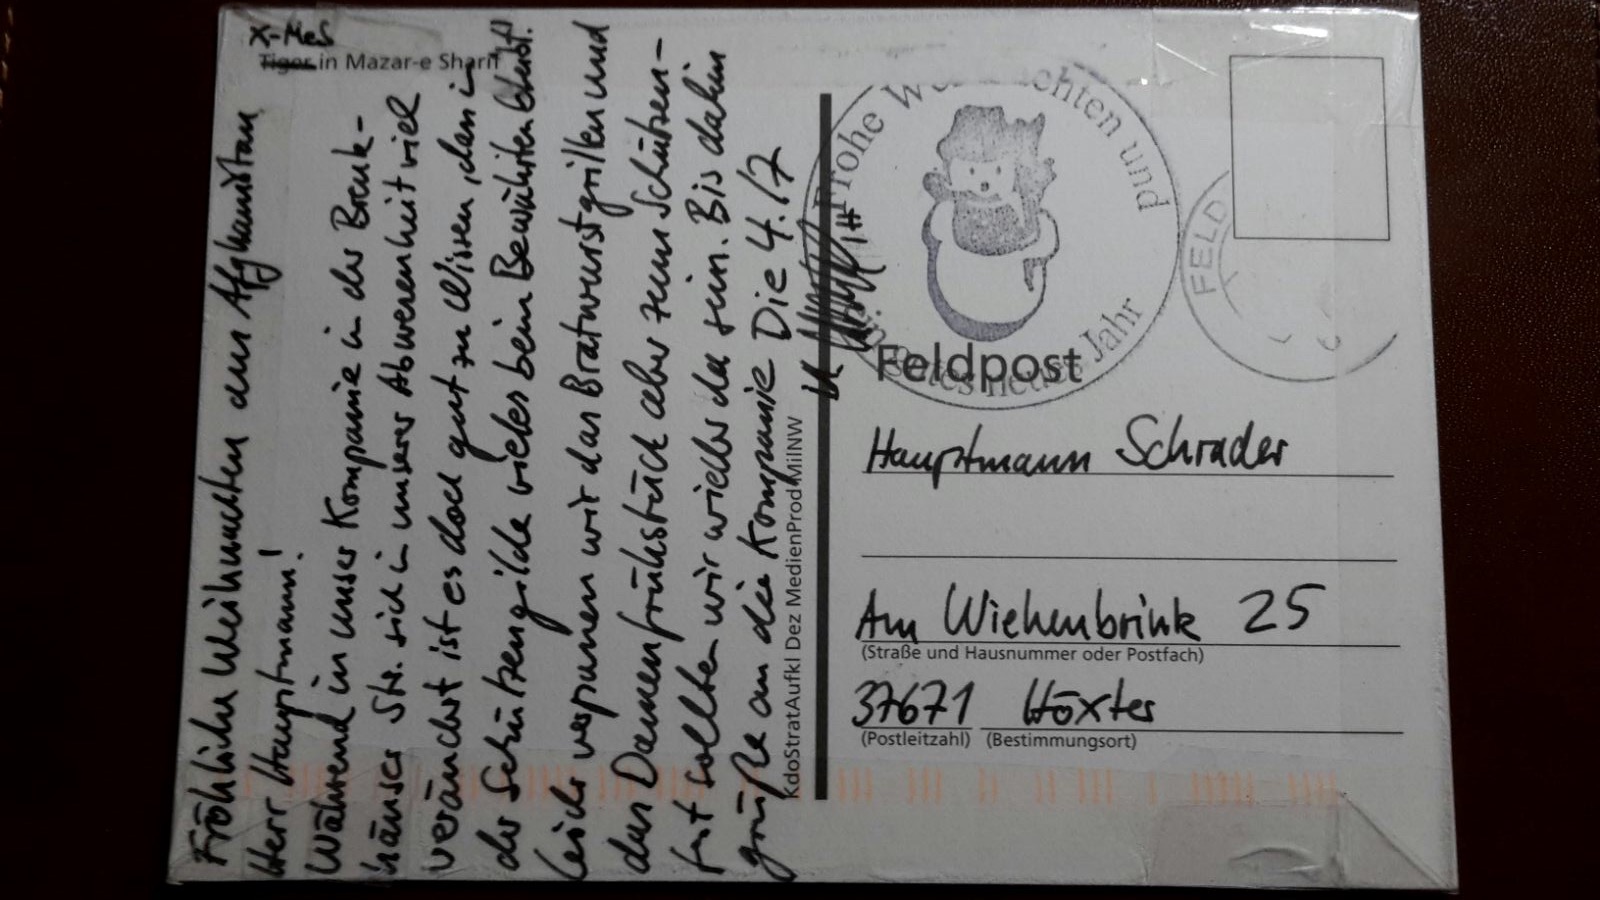 X-Mes
Tiger in Mazar-e Sharif
Fröhliche Weihnachten aus Afghanistan
Herr Hauptmann!
Während in unser Kompanie in der Brenk-
häuser Str. sich in unserer Abwesenheit viel
verändert ist es doch gut zu wissen, dass in
der Schützengilde vieles beim Bewährten bleibt.
Leider verpassen wir das Bratwurstgrillen und
das Damenfrühstück aber zum Schützen-
fest sollten wir wieder da sein. Bis dahin
grüße an die Kompanie Die 4./7
KdoStratAufkl Dez MedienProdMilNW
Frohe Weihnachten und
ein gutes neues Jahr
FELD
Feldpost
Hauptmann Schrader
Am Wiehenbrink 25
(Straße und Hausnummer oder Postfach)
37671 Höxter
(Postleitzahl) (Bestimmungsort)